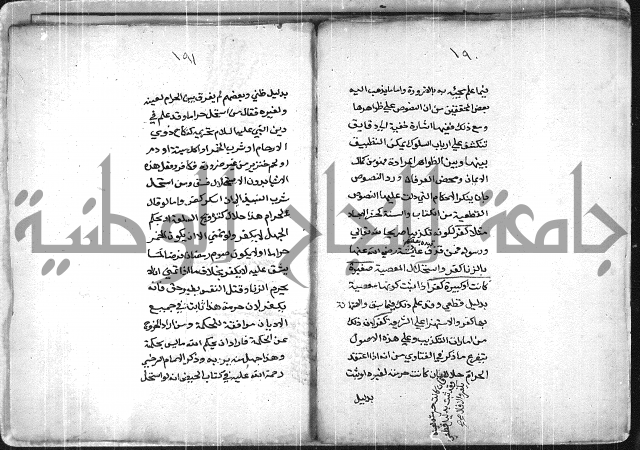 ١٩٠
فيما علم مجيئه به بالضرورة واما ما يذهب اليه
بعض المحققين من ان النصوص على ظواهرها
ومع ذلك ففيها اشارة خفية الى دقايق
تنكشف على ارباب السلوك يمكن التطبيق
بينها وبين الظواهر المرادة فهو من كمال
الايمان ومحض العرفان ورد النصوص
بان ينكر الاحكام التي دلت عليها النصوص
القطعية من الكتاب والسنة كحشر الاجساد
مثلا كفر لكونه تكذيبا صريحا لله تعالى
ورسوله فمن قذف عائشة رضي الله عنها
بالزنا كفر واستحلال المعصية صغيرة
كانت او كبيرة كفر اذا ثبت كونها معصية
بدليل قطعي وقد علم ذلك فيما سبق والاستهانة
بها كفر والاستهزاء على الشريعة كفر لان ذلك
من امارات التكذيب وعلى هذه الاصول
يتفرع ما ذكر في الفتاوى من انه اذا اعتقد
الحرام حلالا فان كانت حرمته لغيره او ثبت
بدليل
١٩١
بدليل ظني وبعضهم لم يفرق بين الحرام لعينه
ولغيره فقال من استحل حراما وقد علم في
دين النبي عليه السلام تحريمه كنكاح ذوي
الارحام او شرب الخمر او اكل ميتة او دم
او لحم خنزير من غير ضرورة فكافر وفعل هذه
الاشياء بدون الاستحلال فسق ومن استحل
شرب النبيذ الى ان يسكر كفر واما لو قال
لحرام هذا حلال لترويج السلعة او بحكم
الجهل لا يكفر ولو تمنى ان لا يكون الخمر
حراما او لا يكون صوم رمضان فرضا لما
يشق عليه لا يكفر بخلاف ما اذا تمنى ان لا
يحرم الزنا وقتل النفس بغير حق فانه
يكفر لان حرمة هذا ثابتة في جميع
الاديان موافقة للحكمة ومن اراد الخروج
عن الحكمة فقد اراد ان يحكم الله ما ليس بحكمة
وهذا جهل منه بربه وذكر الامام السرخسي
رحمة الله عليه في كتاب الحيض انه لو استحل
جامعة النجاح الوطنية